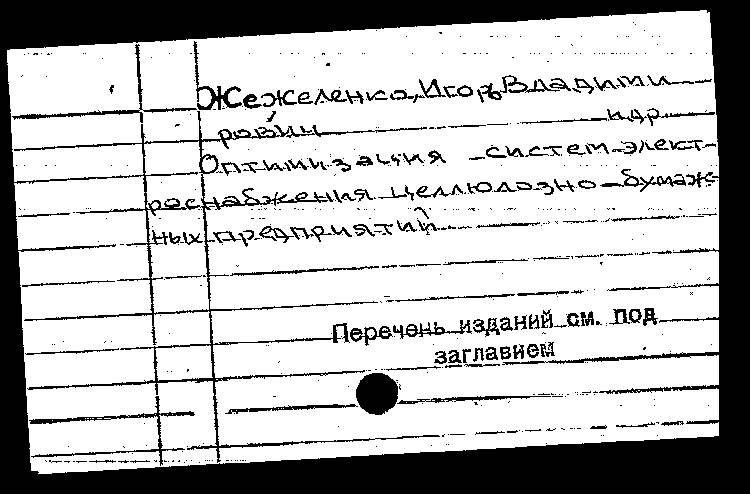 Жежеленко, Игорь Владими
рович и др.
Оптимизация систем элект-
роснабжения целлюлозно-бумаж-
ных предприятий
Перечень изданий см. под
заглавием